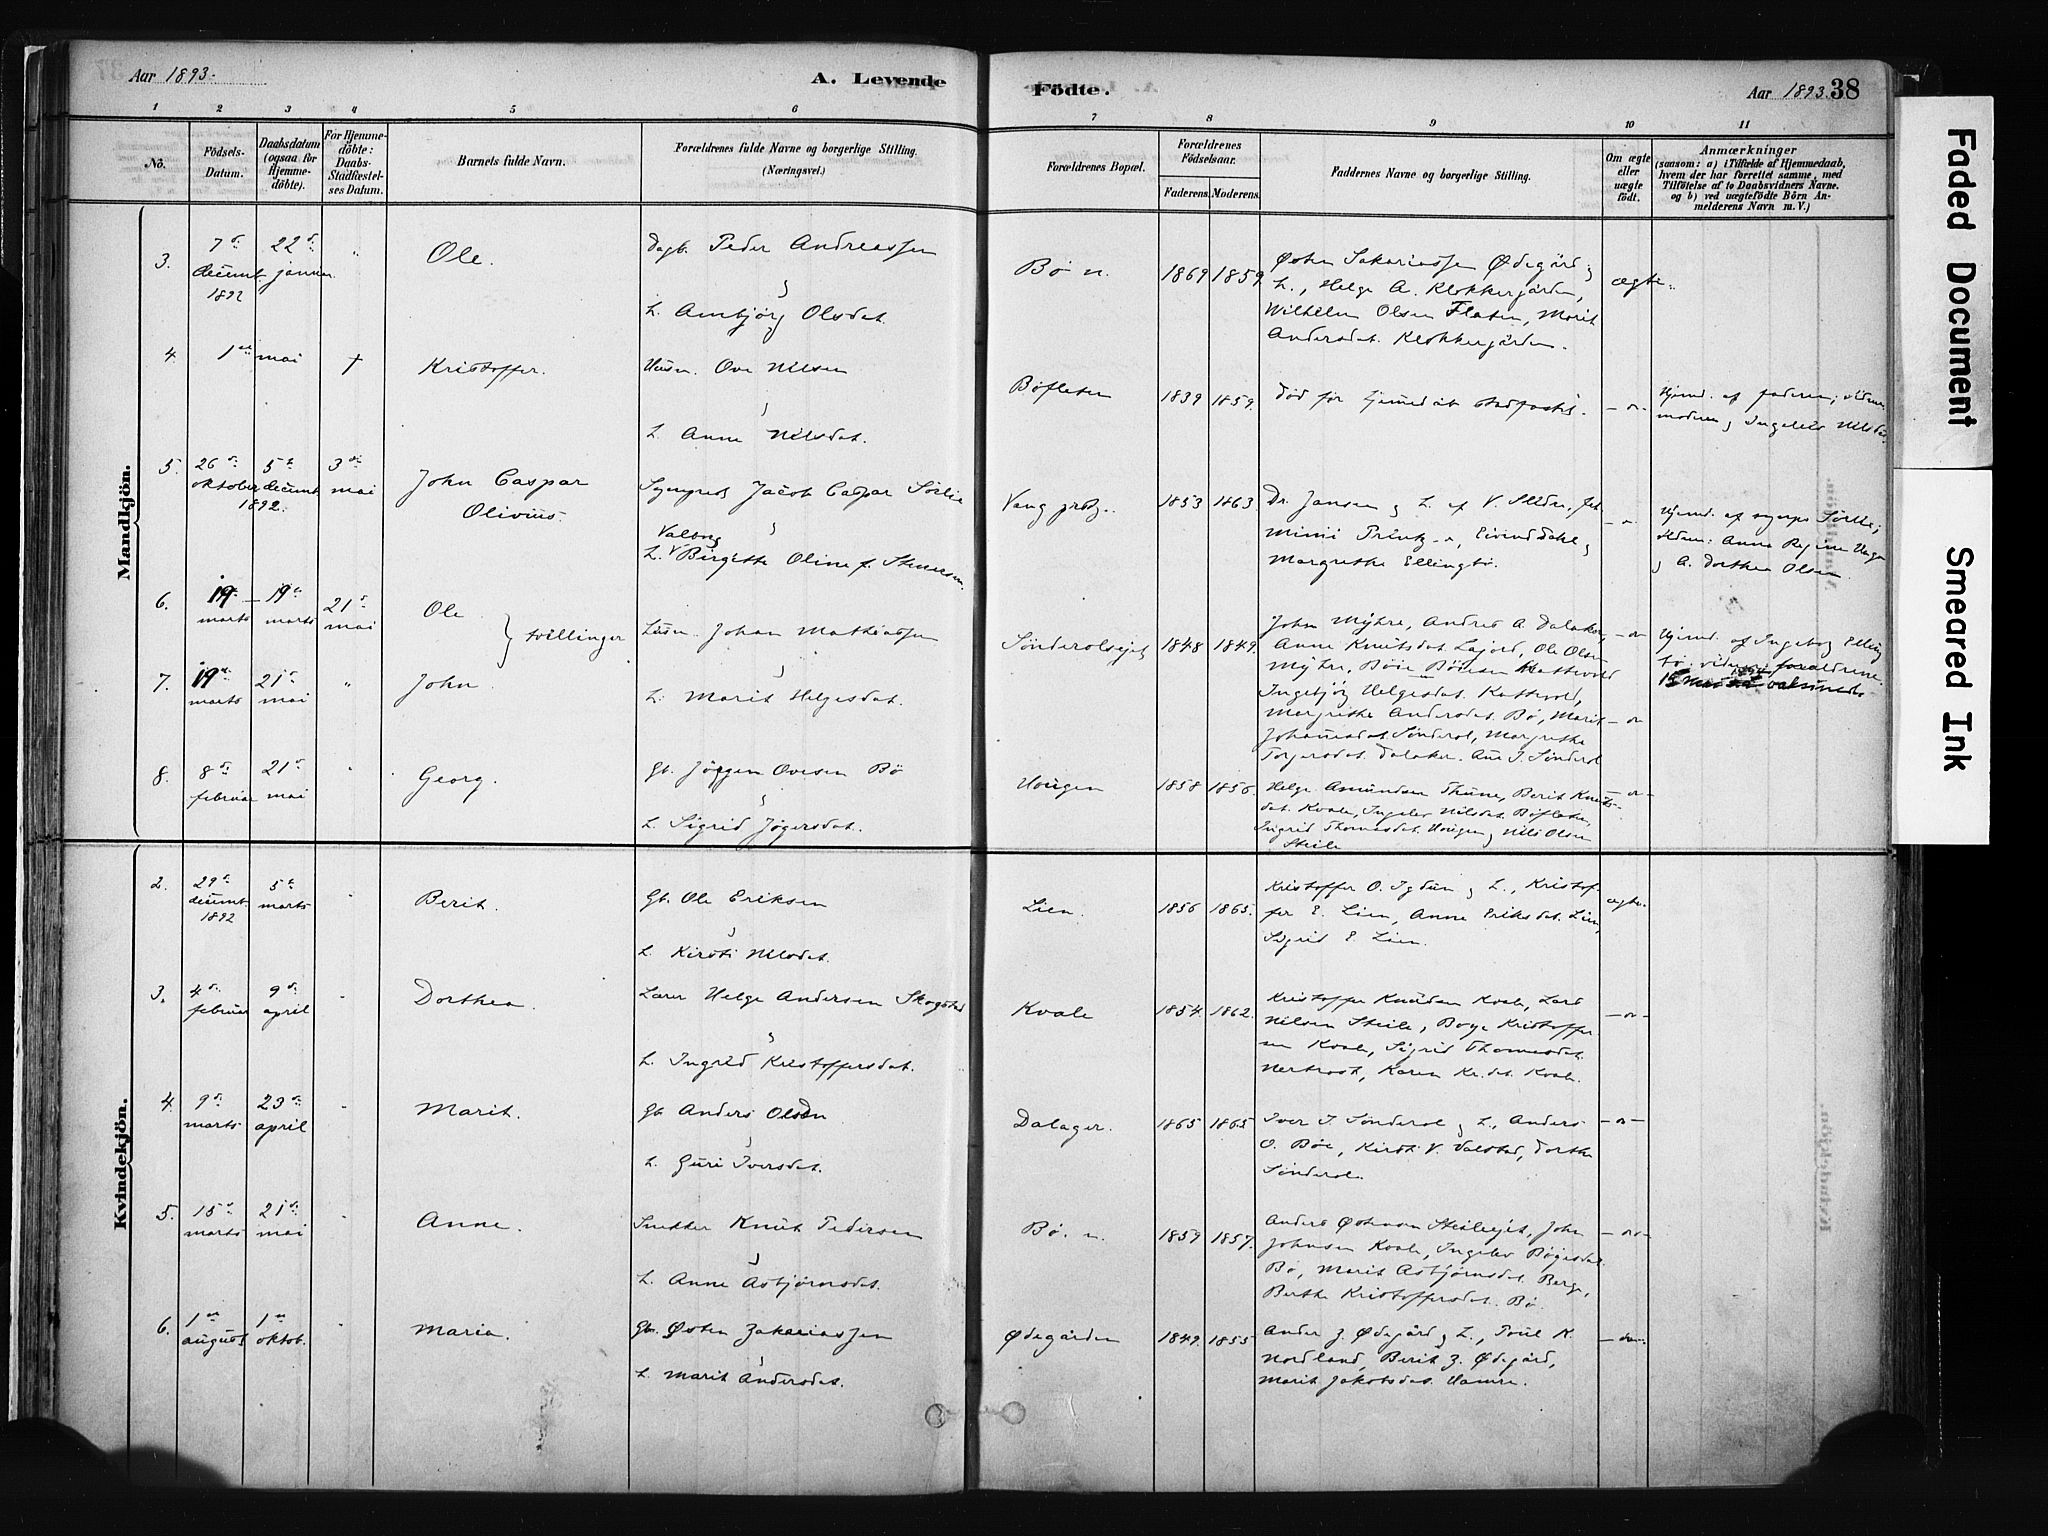 Aar 1893.
A. Levende
Födte.
Aar 1893. 38
1 2 3 4 5 6 7 8 9 10 11
Nô.
Födsels-
Datum.
Daabsdatum
(ogsaa for
Hjemme-
döbte).
För Hjemme-
döbte:
Daabs-
Stadfæstel-
ses Datum.
Barnets fulde Navn.
Forældrenes fulde Navne og borgerlige Stilling.
(Næringsvei.)
Forældrenes Bopæl.
Forældrenes
Födselsaar.
Faderens.
Moderens.
Faddernes Navne og borgerlige Stilling.
Om ægte
eller
uægte
födt.
Anmærkninger
(saasom: a) i Tilfælde af Hjemmedaab,
hvem der har forrettet samme, med
Tilföielse af to Daabsvidners Navne.
og b) ved uægtefödte Börn An-
melderens Navn m. V.)
Mandkjön.
3.
7de
decemb.
1892
22de
januar
Ole.
Dagb. Peder Andreassen
&
h. Ambjørg Olsdat.
Bø n.
1869
1859.
Østen Sakariassen Ødegård &
h., Helge A. Klokkergården,
Wilhelm Olsen Flaten, Marit
Andersdat. Klokkergården.
ægte.
4.
1ste mai
†
Kristoffer.
Husm. Ove Nilsen
&
h. Anne Nilsdat.
Bøflaten
1839
1859.
død før hjemmedåb stadfæst.
Hjemd. af faderen;
moderen & Ingeleiv Nilsdat.
5.
26de
oktober
5te
decemb.
1892.
3de
mai
John Caspar
Olivius.
Jacob Caspar Sørlie
&
Valborg
h. Birgitte Oline f. Stenersen
Vang
1853
1863
Dr. Jansen & h. af V. Slidre,
Mimi Printz, Eivind Dahl &
Margrethe Ellingbø.
Hjemd. af Sørlie;
Anne Regine
& A. Dorthea Olsen.
6.
19de
marts
19de
marts
21de
mai
Ole
tvillinger
Husm. Johan Mathiassen
&
h. Marit Helgesdat.
Sønderolsejet
1848
1849.
John Myhre, Andres A. Dalaker,
Anne Knutsdat. Lajord, Ole Olsen
Myhre, Bøie Bøiesen Kattevold
Ingebjørg Helgesdat. Kattevold,
Margrethe Andersdat. Bø, Marit
Johannesdat. Sønderol, Margrethe
Torgersdat. Dalaker. Ane J. Sønderol
Hjemd. af Ingeborg Elling
bø. vidner: forældrene.
7.
19de
marts
21de
mai
John
8.
8de
februar
21de
mai
Georg.
Gb. Jørgen Ovesen Bø
&
h. Sigrid Jøgersdat.
Hougen
1858
1856.
Helge Amundsen Thune, Berit Knuts-
dat. Kvale, Ingeleiv Nilsdat. Bøflaten,
Ingrid Thomasdat. Hougen & Nils Olsen
Steile
Kvindekjön.
2.
29de
decemb.
1892
5te
marts
Berit.
Gb. Ole Eriksen
&
h. Kirsti Nilsdat.
Lien.
1856
1865.
Kristoffer O. Igdun & h., Kristof-
fer E. Lien, Anne Eriksdat. Lien,
Sigrid E. Lien.
ægte.
3.
4de
februar
9de
april
Dorthea.
Lærer Helge Andersen Skogstad
&
h. Ingrid Kristoffersdat.
Kvale
1854.
1862.
Kristoffer Knudsen Kvale, Lars
Nilsen Steile, Boye Kristoffer-
sen Kvale, Sigrid Thomasdat.
Nertrost, Karen Kr.dat. Kvale.
4.
9de
marts
23de
april
Marit.
Gb. Anders Olsen
&
h. Guri Iversdat.
Dalager.
1865
1865
Iver I. Sønderol & h., Anders
O. Bøe, Kirsti V. Valstad, Dorthe
Sønderol.
5.
15de
marts
21de
mai
Anne.
Snedker Knut Pedersen
&
h. Anne Asbjørnsdat.
Bø. n.
1859
1857.
Anders Østensen Steileejet, John
Johnsen Kvale, Ingeleiv Bøgesdat.
Bø, Marit Asbjørnsdat. Berge,
Berthe Kristoffersdat. Bø.
6.
1ste
august
1ste
oktob.
Maria.
Gb. Østen Zakariassen
&
h. Marit Andersdat.
Ødegården
1849.
1855
Ander Z. Ødegård & h., Poul K.
Nordland, Berit Z. Ødegård,
Marit Jakobsdat. Hamre.
Faded Document
Smeared Ink